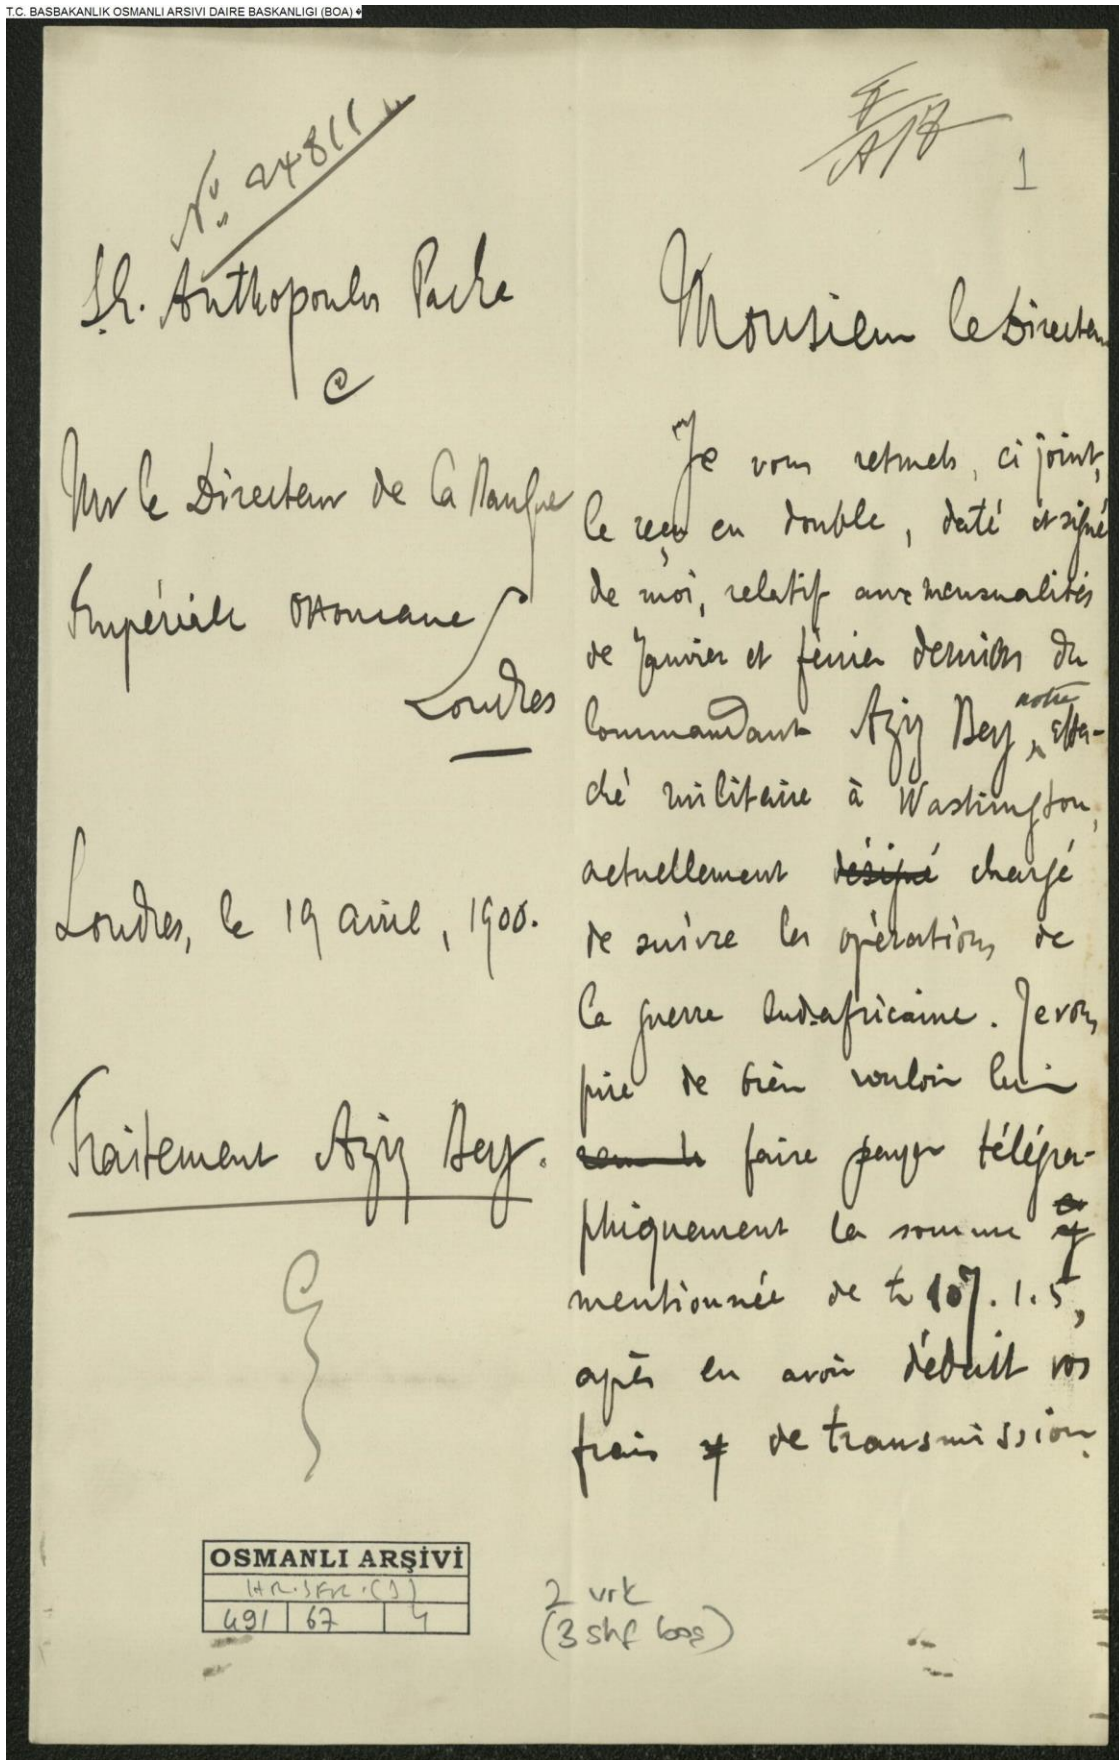 T.C. BASBAKANLIK OSMANLI ARSIVI DAIRE BASKANLIGI (BOA)
No. 24811
1
S.E. Anthopoulos Pacha
à
Mr le Directeur de la Banque
Impériale Ottomane
Londres
Londres, le 19 avril, 1900.
Traitement Aziz Bey.
Monsieur le Directeur
Je vous remets, ci joint,
le reçu en double, daté et signé
de moi, relatif aux mensualités
de Janvier et février derniers du
Commandant Aziz Bey, notre atta-
ché militaire à Washington,
actuellement désigné chargé
de suivre les opérations de
la guerre Sud-africaine. Je vous
prie de bien vouloir lui
faire payer télégra-
phiquement la somme
mentionnée de 107.1.5,
après en avoir déduit vos
frais de transmission.
OSMANLI ARŞİVİ
HR.SFR.(3)
491 67 4
2 vrk
(3 shf boş)